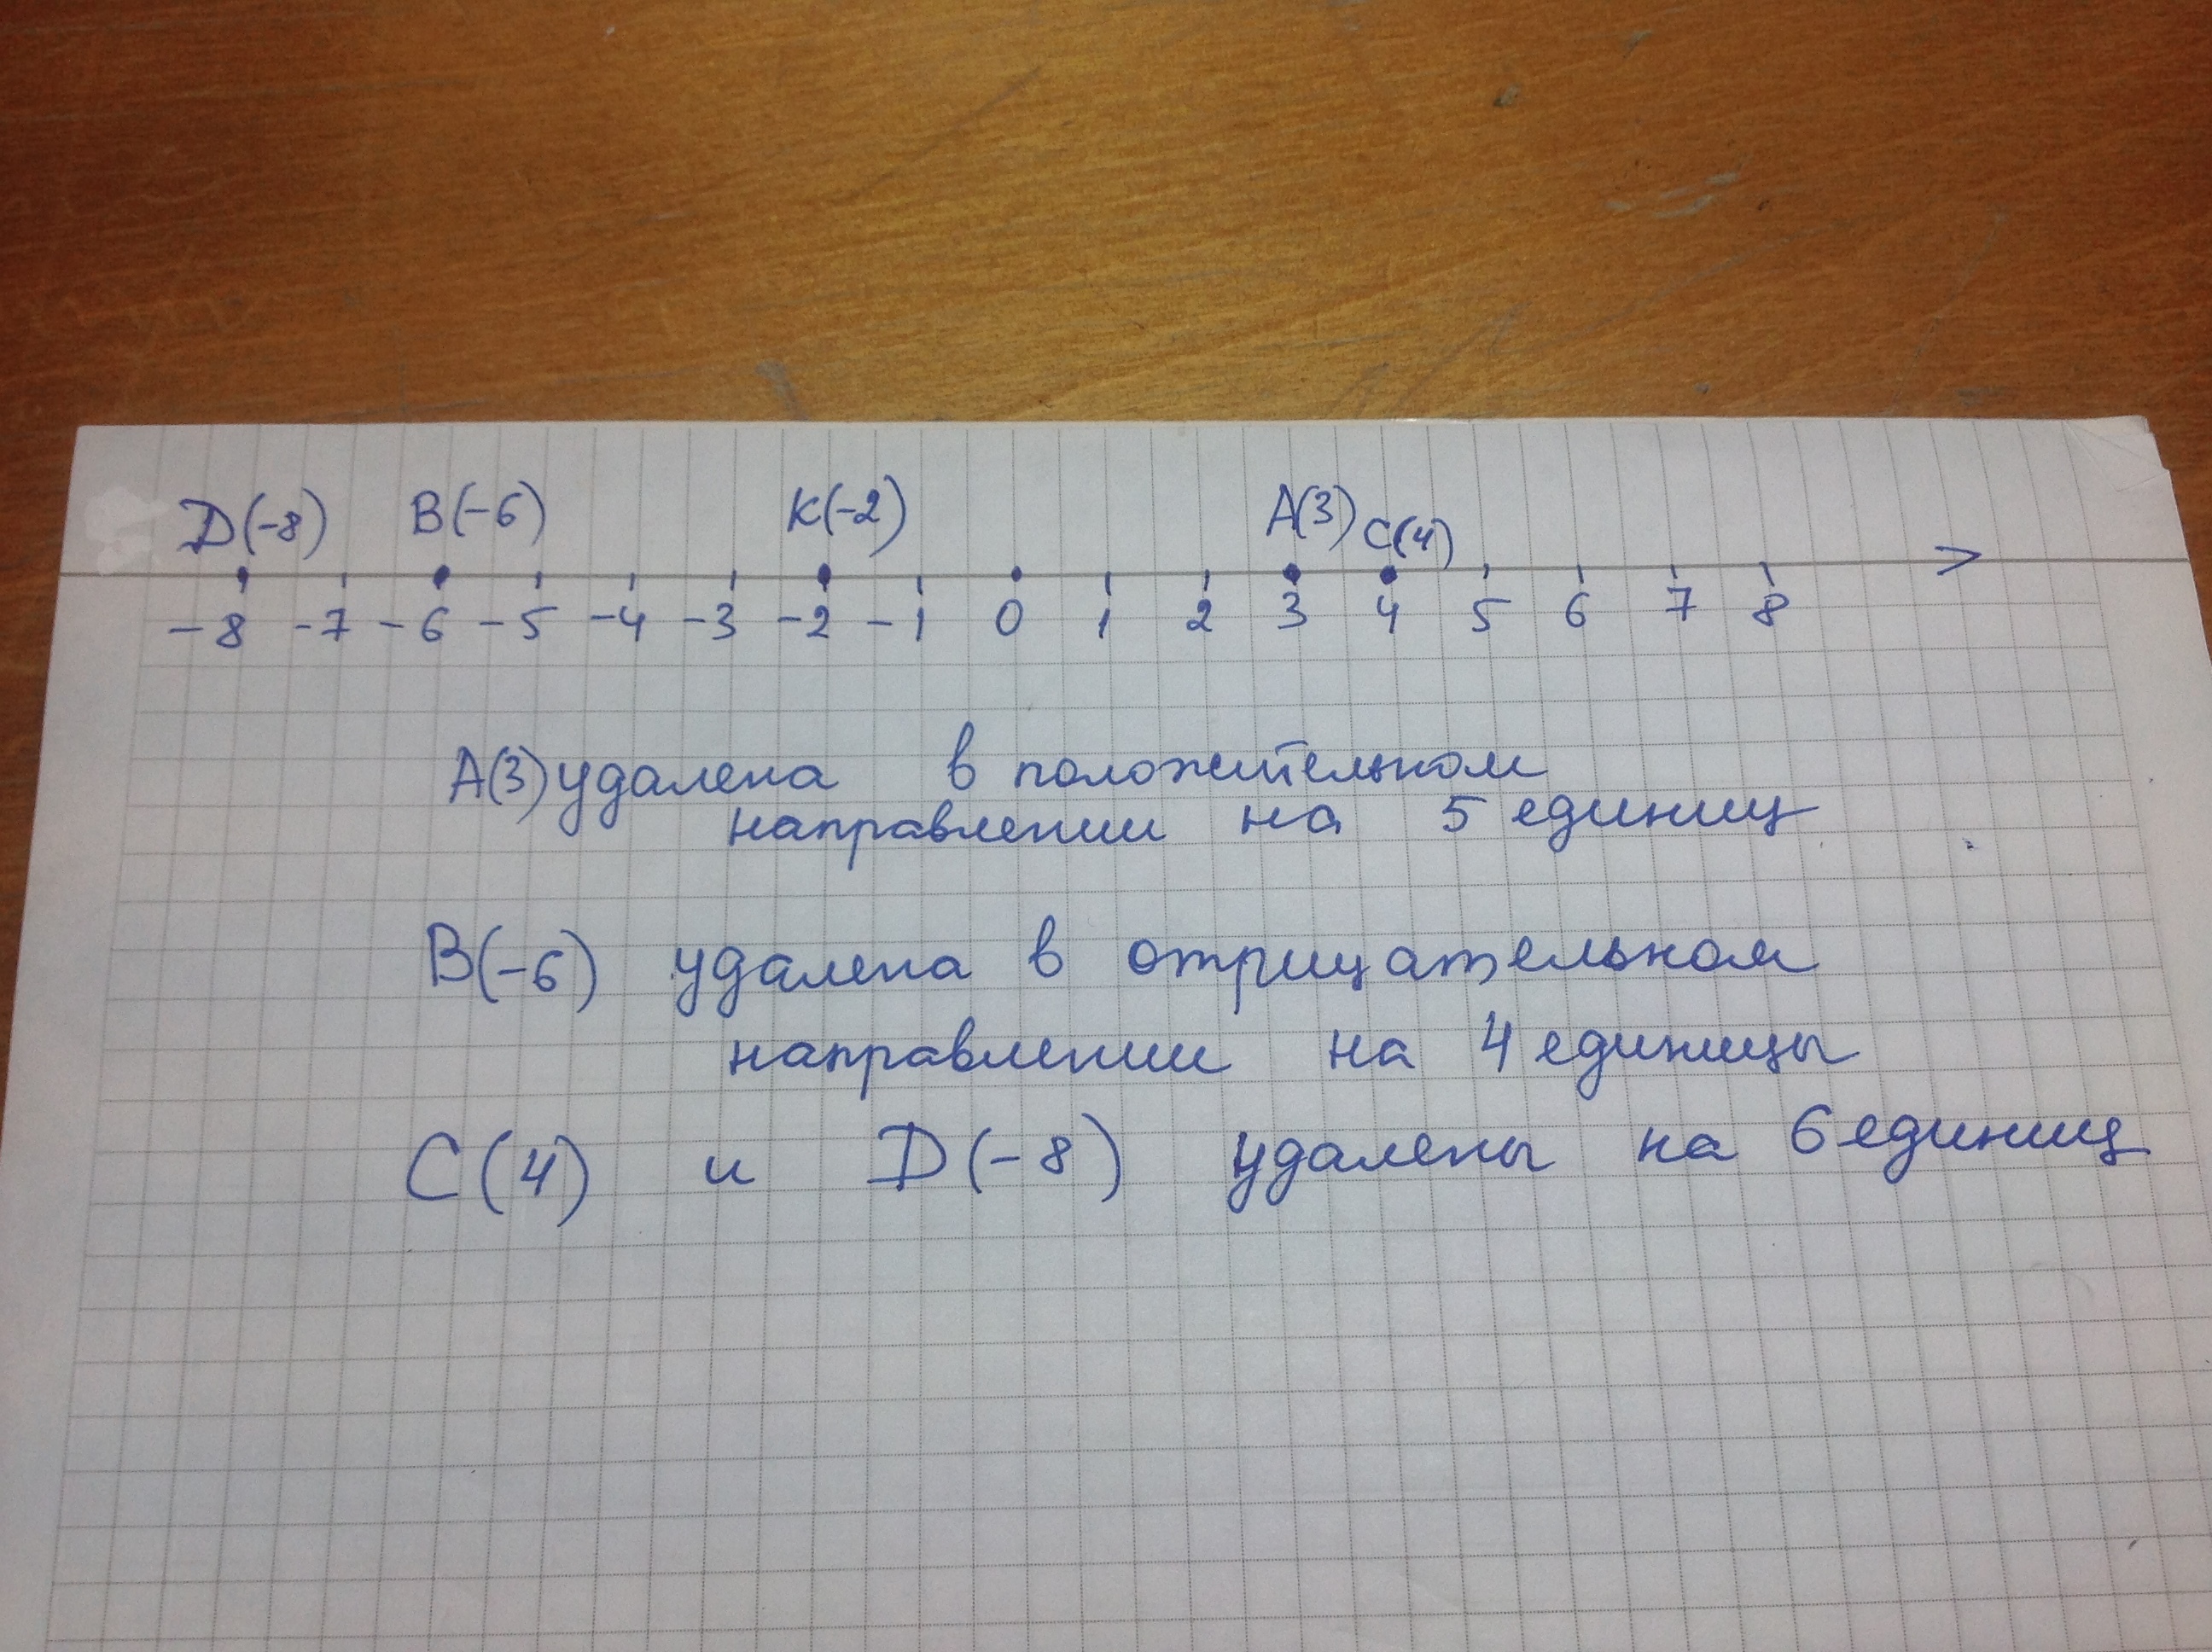 D(-8) B(-6) K(-2) A(3) C(4)
-8 -7 -6 -5 -4 -3 -2 -1 0 1 2 3 4 5 6 7 8
A(3) удалена в положительном
направлении на 5 единиц
B(-6) удалена в отрицательном
направлении на 4 единицы
C(4) и D(-8) удалены на 6 единиц